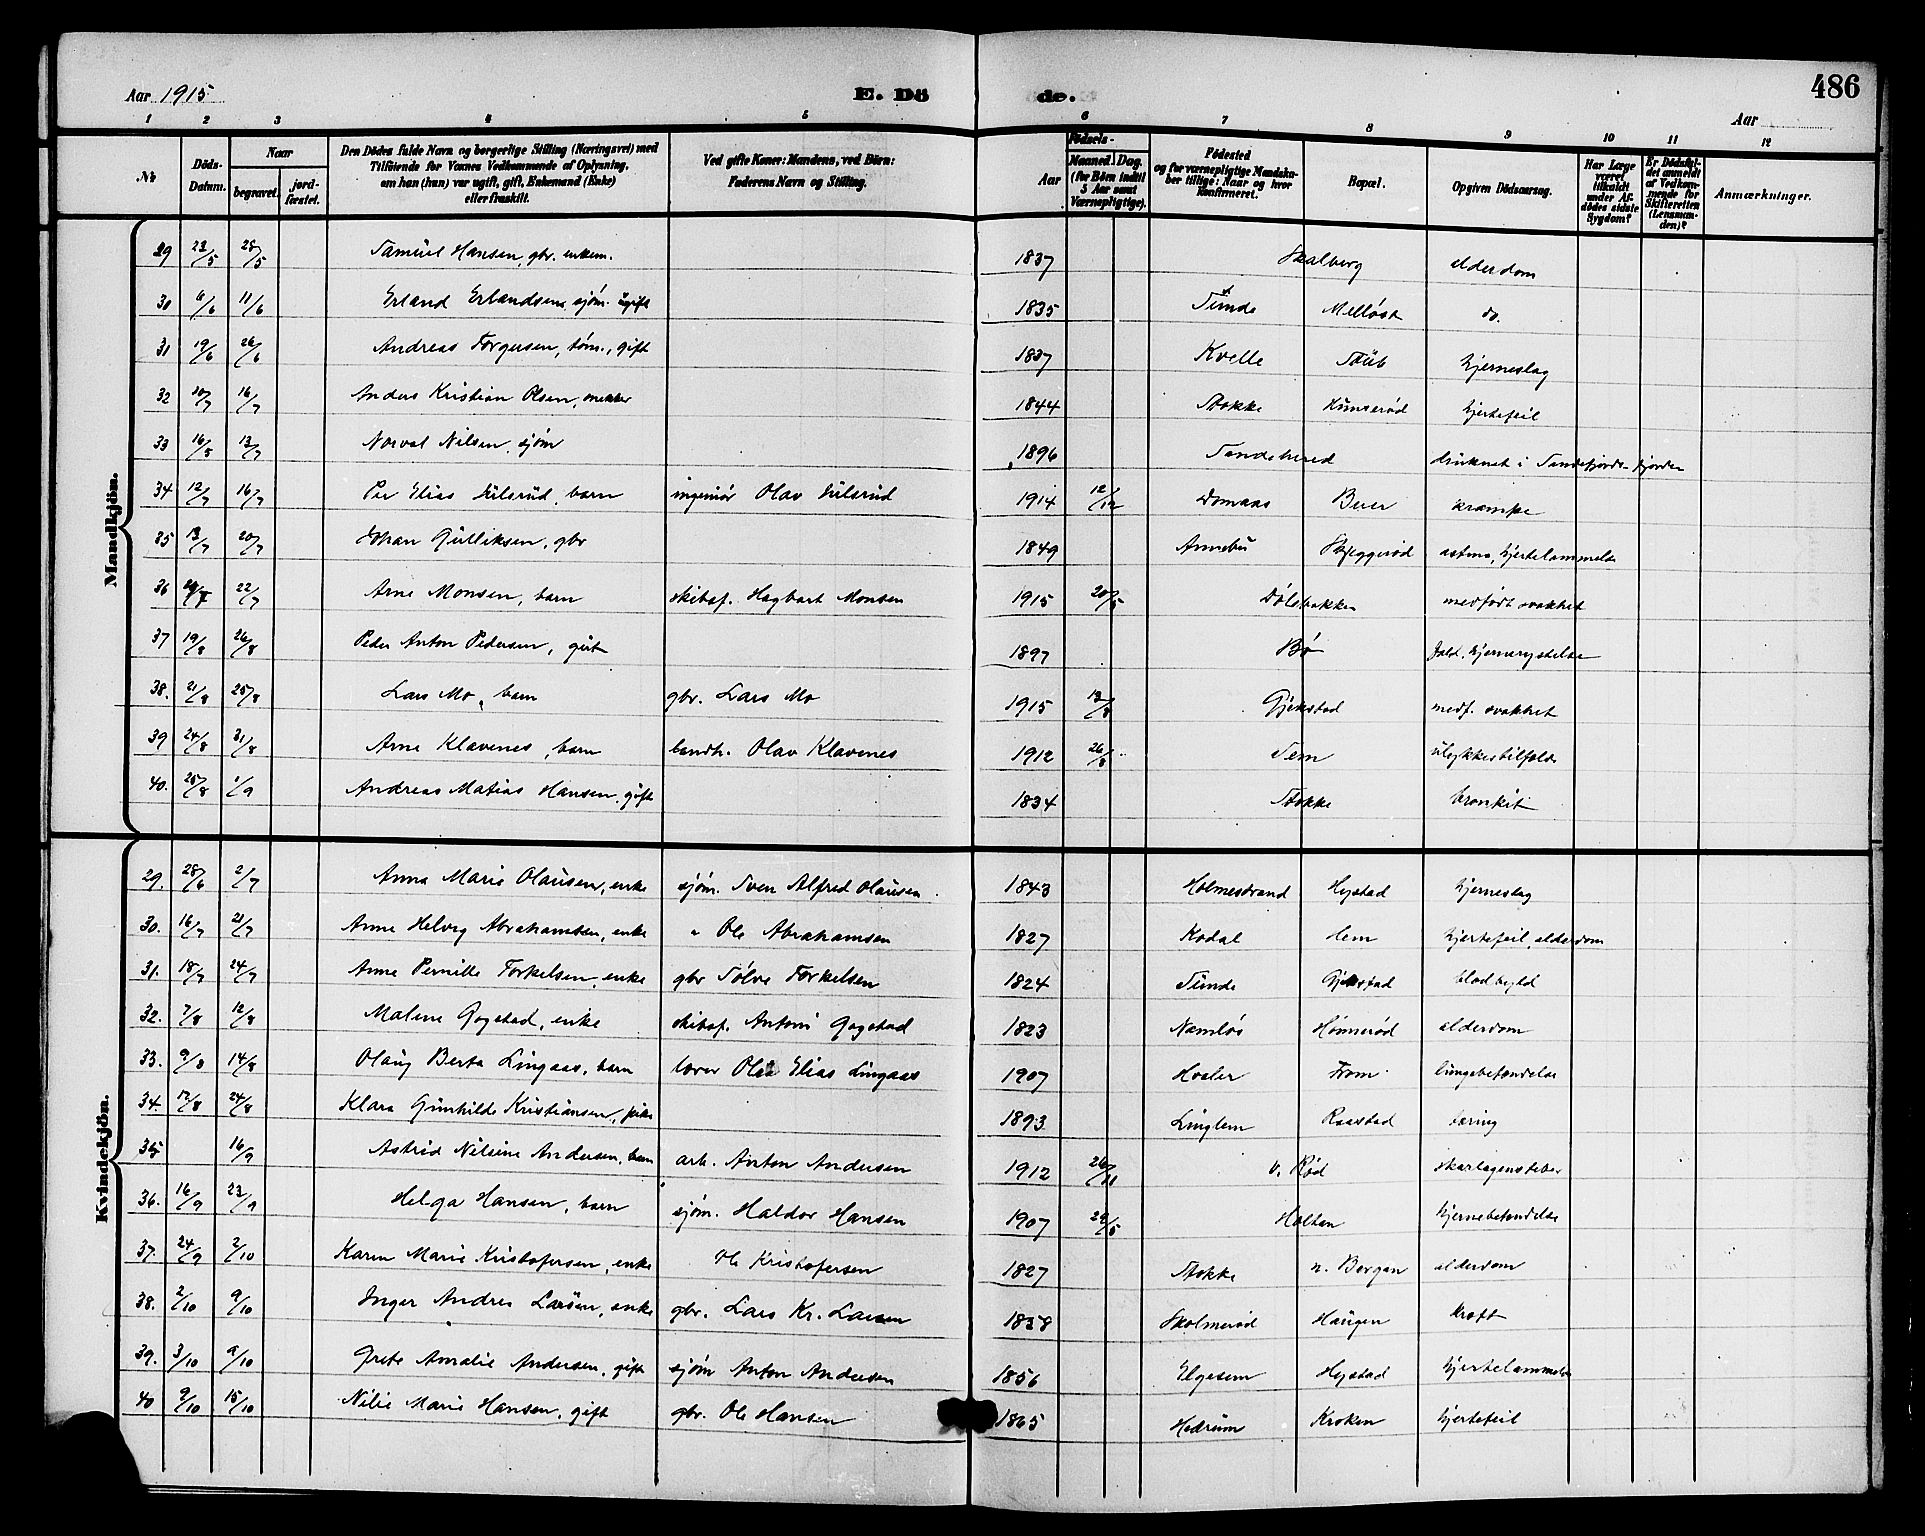 Aar 1915 E. Dö de. 486
Aar
1 2 3 4 5 6 7 8 9 10 11 12
№ Döds-Datum. Naar begravet. jord-fæstet. Den Dödes fulde Navn og borgerlige Stilling (Næringsvei) med Tilföiende for Voxnes Vedkommende af Oplysning, om han (hun) var ugift, gift, Enkemand (Enke) eller fraskilt. Ved gifte Koner: Mandens, ved Börn: Faderens Navn og Stilling. Fødsels- Aar Maaned. Dag. (for Börn indtil 5 Aar samt Værnepligtige). Födested og for værnepligtige Mandska-ber tillige: Naar og hvor Konfirmeret. Bopæl. Opgiven Dödsaarsag. Har Læge været tilkaldt under Af-dödes sidste Sygdom? Er Dödsfal-det anmeldt af Vedkom-mende for Skifteretten (Lensman-den)? Anmærkninger.
Mandkjön.
29 23/5 28/5 Samuel Hansen, gbr. enkem. 1837 Skalberg alderdom
30 6/6 11/6 Erland Erlandsen, sjøm. ugift 1835 Sunde Melløst do.
31 19/6 26/6 Andreas Torgersen, tøm., gift 1837 Kvelle Staub hjerneslag
32 10/7 16/7 Anders Kristian Olsen, snekker 1844 Stokke Kunserød hjertefeil
33 16/5 13/7 Norval Nilsen, sjøm 1896 Sandeherred druknet i Sandefjords-fjorden
34 12/7 16/7 Per Elias Julsrud, barn ingeniør Olav Julsrud 1914 12/12 Domaas Buer krampe
35 13/7 20/7 Johan Gulliksen, gbr 1849 Annebu Skjeggerød astma, hjertelammelse
36 22/7 Arne Monsen, barn skibsf. Hagbart Monsen 1915 20/5 Dølebakken medfødt svakhet
37 19/8 26/8 Peder Anton Pedersen, gut 1897 Bø fald, hjernerystelse
38. 21/8 25/8 Lars Mo, barn gbr. Lars Mo 1915 13/8 Gjekstad medf. svakhet
39 24/8 31/8 Arne Klavenes, barn landh. Olav Klavenes 1912 26/8 Sem ulykkestilfælde
40. 25/8 1/9 Andreas Matias Hansen, gift 1834 Stokke bronkit
Kvindekjön.
29. 28/6 2/7 Anna Marie Olausen, enke sjøm. Sven Alfred Olausen. 1843 Holmestrand Hystad hjerneslag
30. 16/7 21/7 Anne Helvig Abrahamsen, enke " Ole Abrahamsen 1827 Kodal Hem hjertefeil, alderdom
31. 18/7 24/7 Anne Pernille Torkelsen, enke gbr Sølve Torkelsen 1824 Sunde Gjekstad blodbyld
32. 7/8 12/8 Malene Gogstad, enke skibsf. Antoni Gogstad 1823 Namløs Hønnerød alderdom
33. 9/8 14/8 Olaug Berta Lingaas, barn lærer Ole Elias Lingaas 1907 Hvaler From lungebetændelse
34. 17/8 24/8 Klara Gunhilde Kristiansen, pike 1893 Linglem Raastad tæring
35 16/9 Astrid Nilsine Andersen, barn arb. Anton Andersen 1912 26/11 v. Rød skarlagensfeber
36. 16/9 23/9 Helga Hansen, barn sjøm. Haldor Hansen 1907 29/5 Holtan hjernebetændelse
37. 24/9 2/10 Karen Marie Kristofersen, enke Ole Kristofersen 1827 Stokke n. Bergan alderdom
38. 2/10 9/10 Inger Andrea Larsen, enke gbr. Lars Kr. Larsen 1838 Skolmerød Haugen kræft
39. 3/10 9/10 Grete Amalie Andersen, gift sjøm Anton Andersen 1856 Elgesem Hystad hjertelammelse
40 9/10 15/10 Nilie Marie Hansen, gift gbr. Ole Hansen 1865 Hedrum Kroken hjertefeil